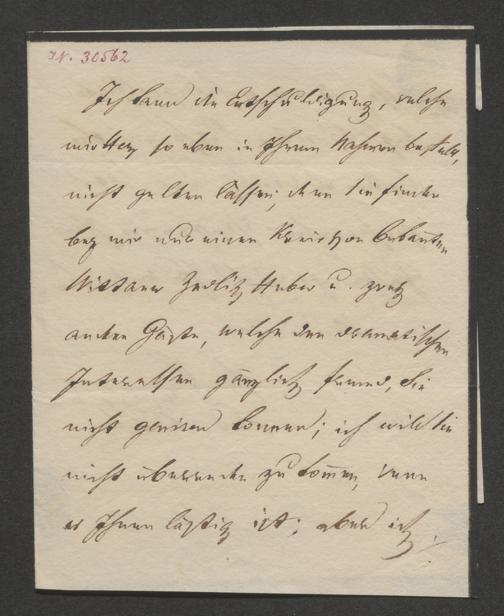 I.N. 30562
Ich kann die Entschuldigung, welche
mir Herz so eben in Ihrem Nahmen bestellt,
nicht gelten lassen; denn Sie finden
bey mir nur einen Kreis von Bekannten
Witthauer Zedlitz Huber u. zwey
andere Gäste, welche den dramatischen
Interessen gänzlich fremd, Sie
nicht geniren können; ich will Sie
nicht überreden zu kommen, wenn
es Ihnen lästig ist; aber ich